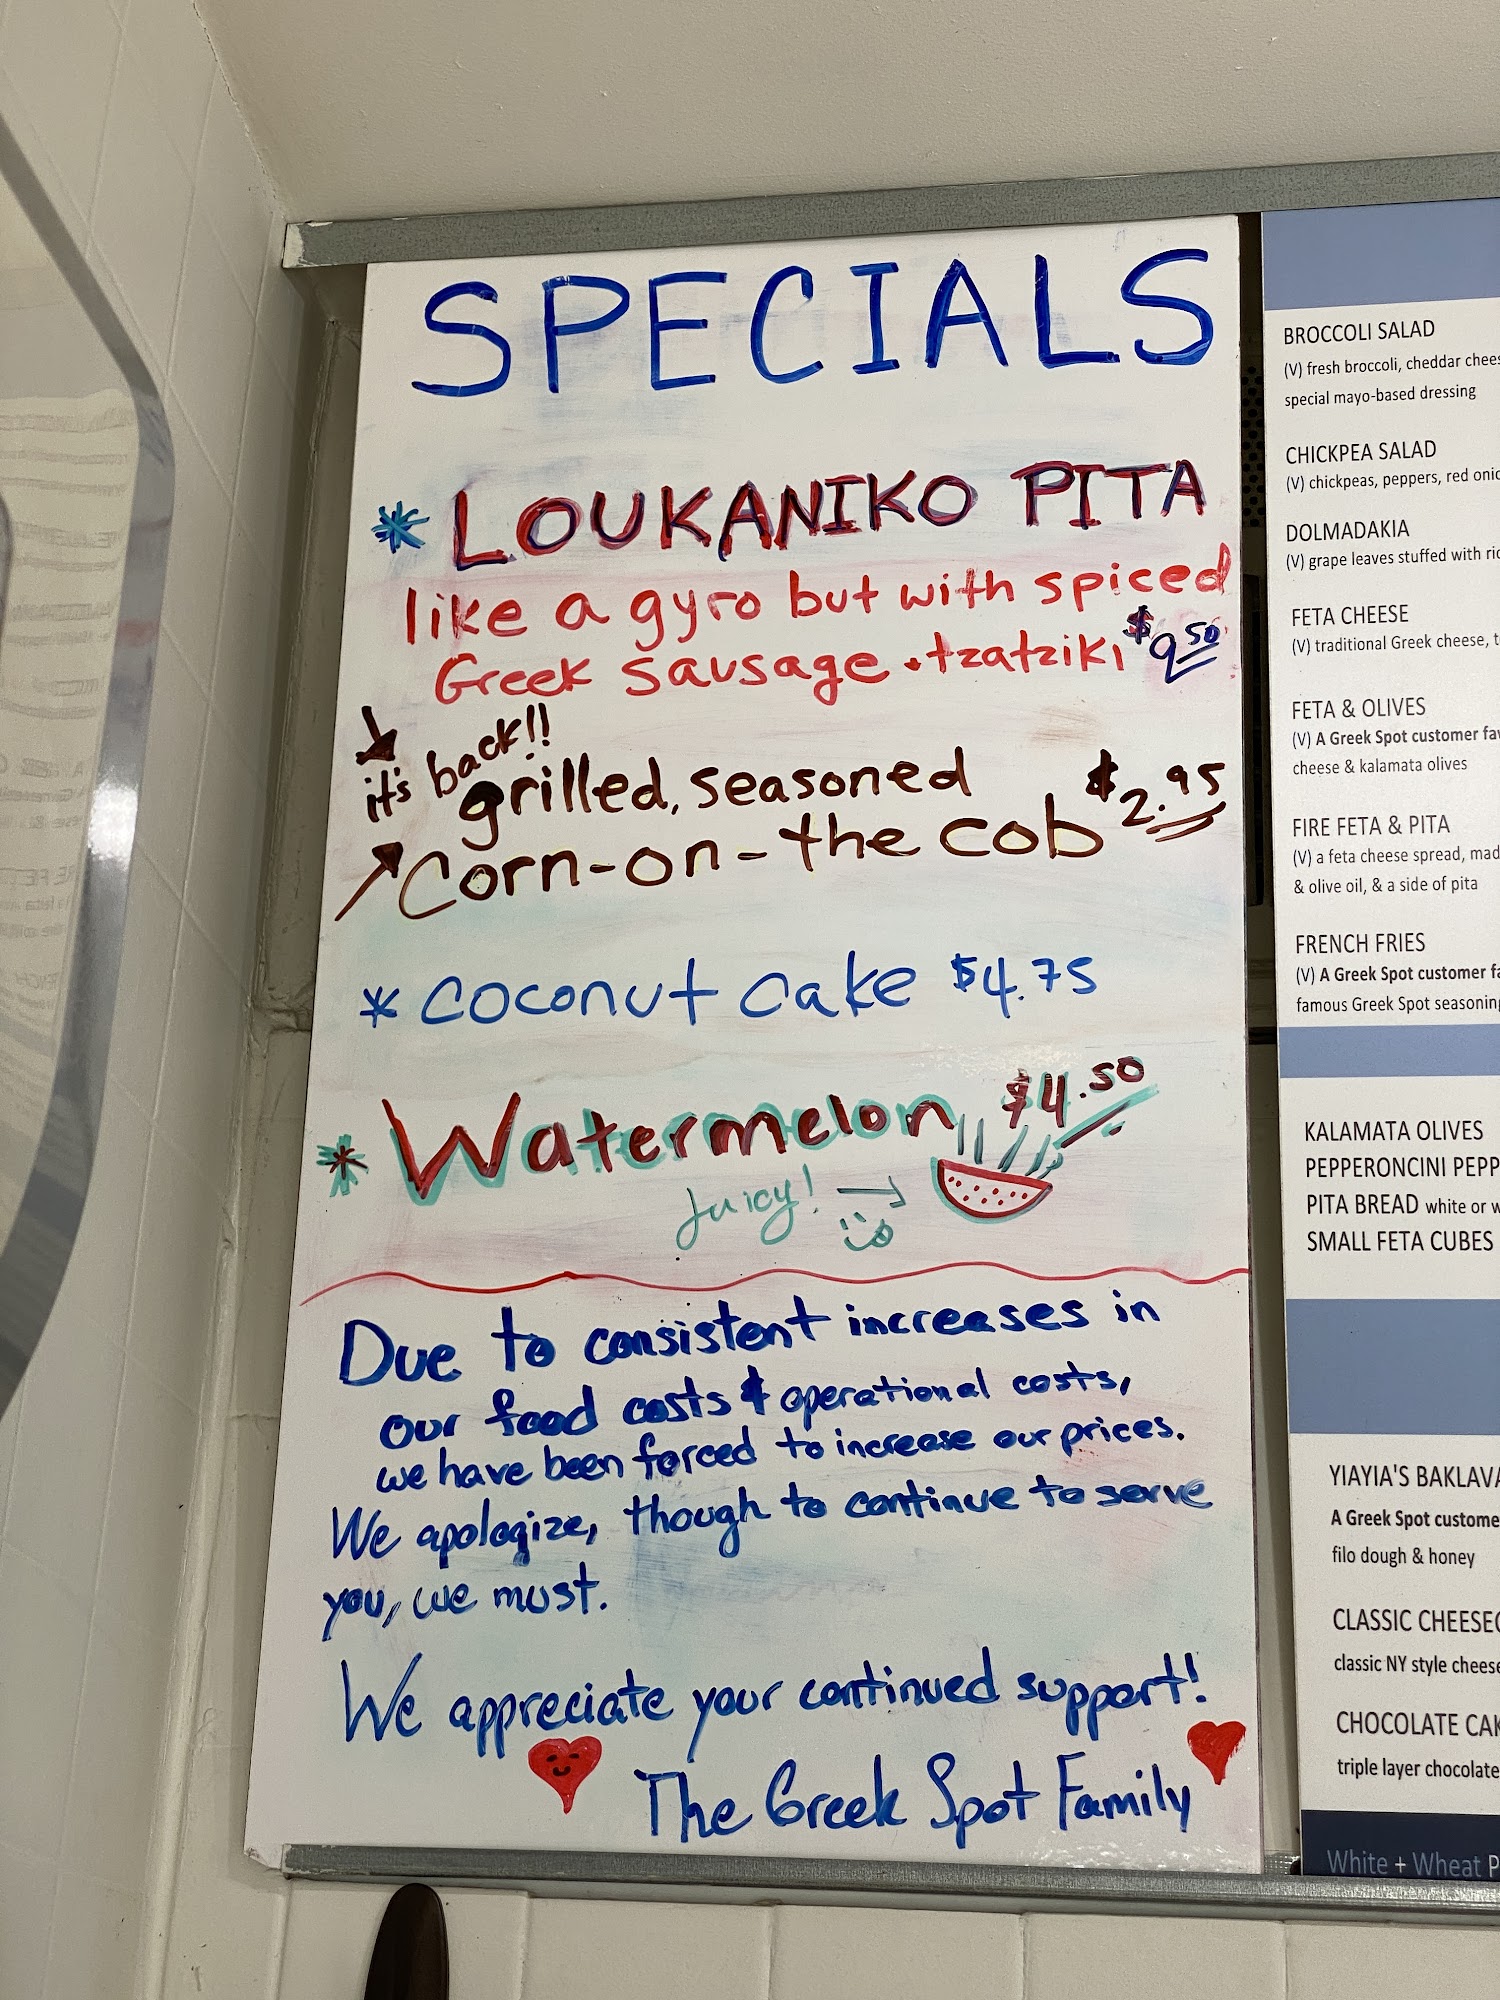 SPECIALS
* LOUKANIKO PITA
like a gyro but with spiced
Greek sausage + tzatziki $9.50
it's back!!
grilled, seasoned
Corn-on-the cob $2.95
* coconut cake $4.75
* Watermelon $4.50
Juicy! →
Due to consistent increases in
our food costs & operational costs,
we have been forced to increase our prices.
We apologize, though to continue to serve
you, we must.
We appreciate your continued support!
The Greek Spot Family
BROCCOLI SALAD
(V) fresh broccoli, cheddar chees
special mayo-based dressing
CHICKPEA SALAD
(V) chickpeas, peppers, red onio
DOLMADAKIA
(V) grape leaves stuffed with ric
FETA CHEESE
(V) traditional Greek cheese, t
FETA & OLIVES
(V) A Greek Spot customer fav
cheese & kalamata olives
FIRE FETA & PITA
(V) a feta cheese spread, mad
& olive oil, & a side of pita
FRENCH FRIES
(V) A Greek Spot customer fa
famous Greek Spot seasoning
KALAMATA OLIVES
PEPPERONCINI PEPP
PITA BREAD white or w
SMALL FETA CUBES
YIAYIA'S BAKLAVA
A Greek Spot custome
filo dough & honey
CLASSIC CHEESEC
classic NY style cheese
CHOCOLATE CAK
triple layer chocolate
White + Wheat P